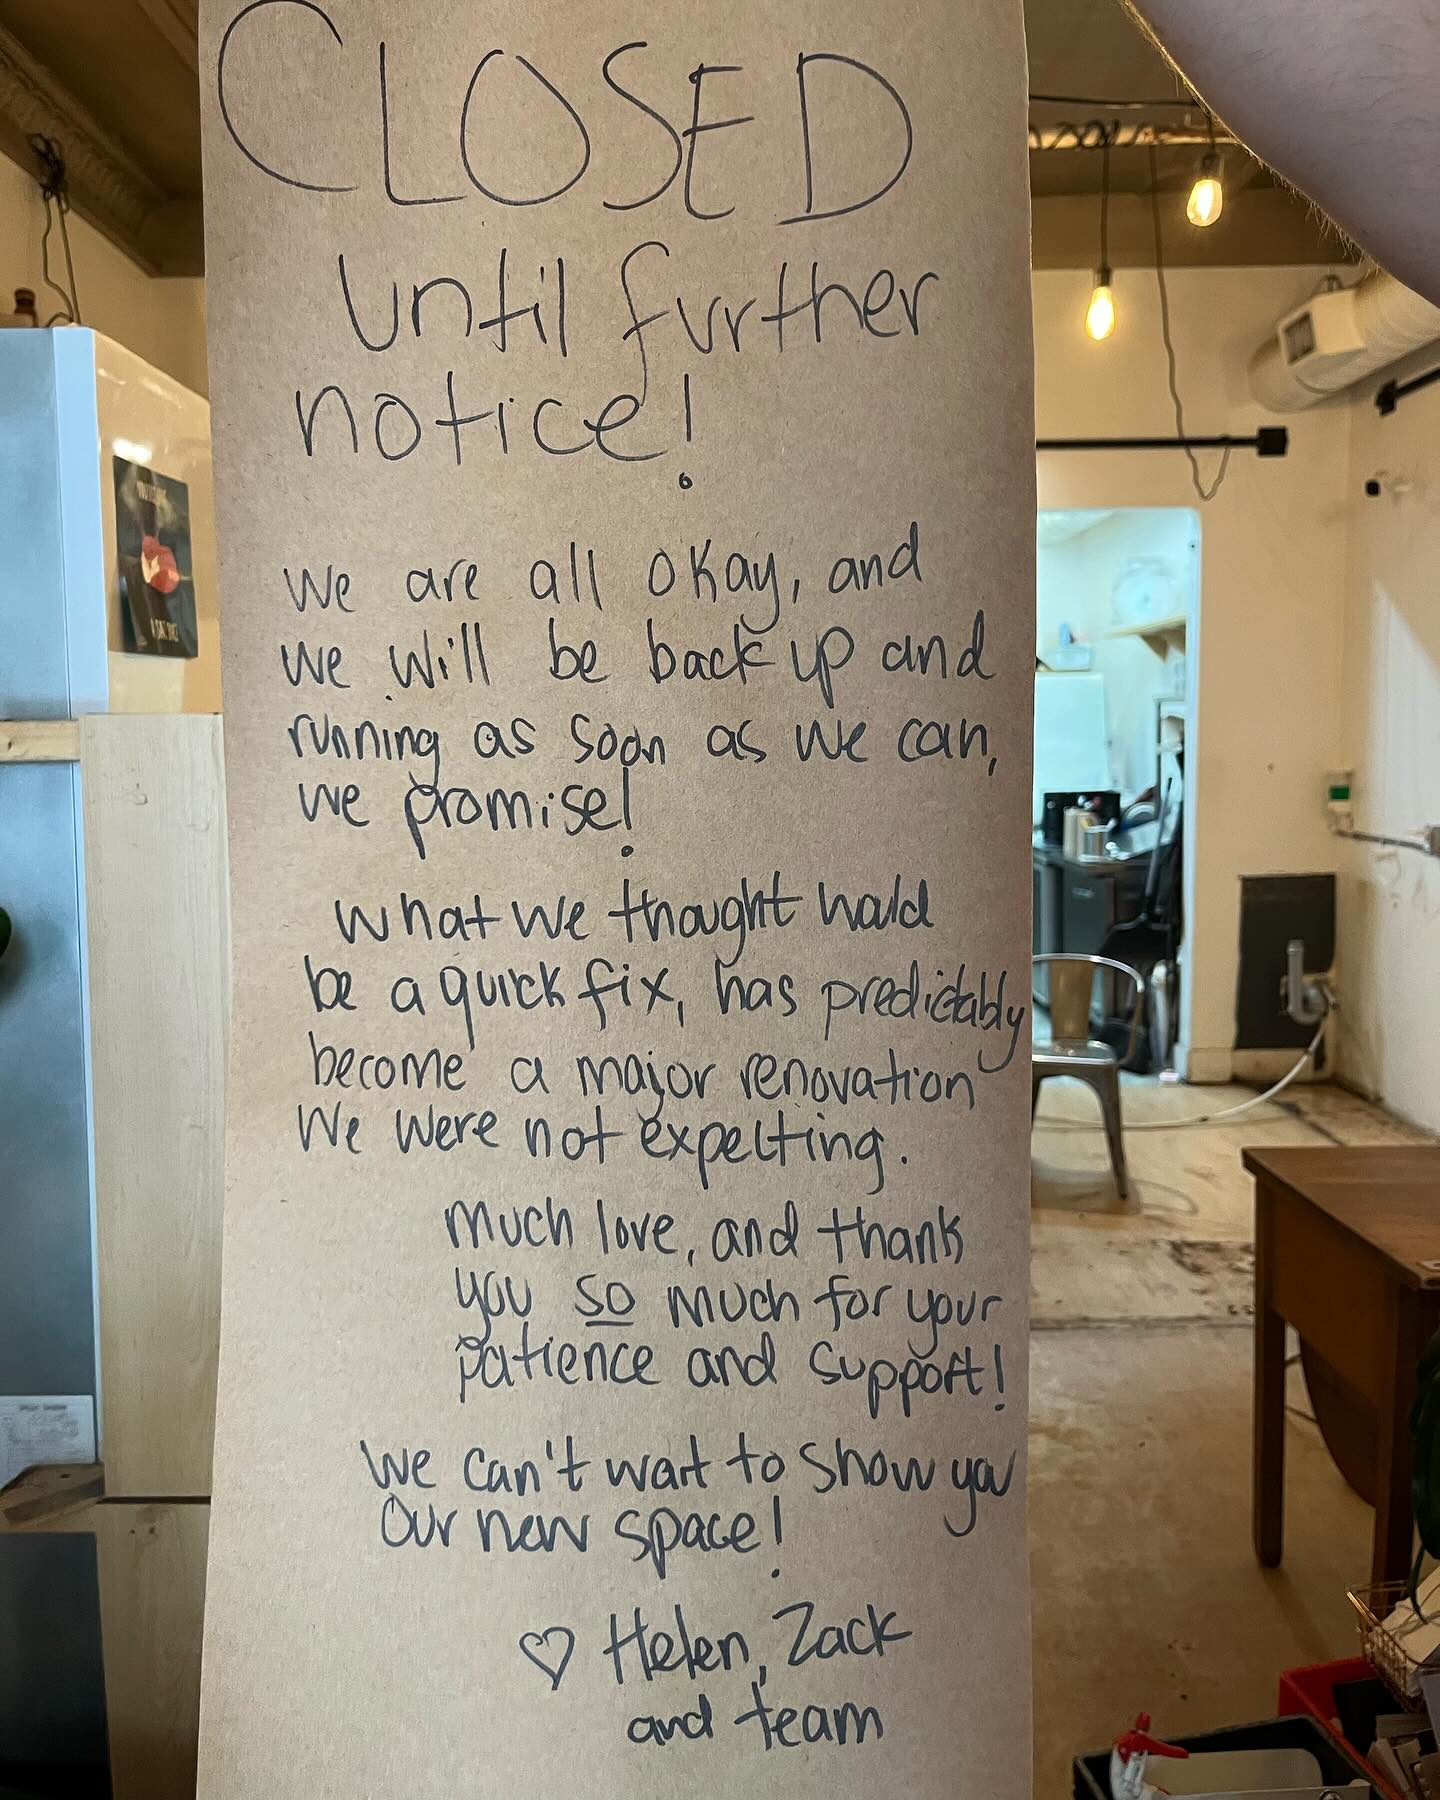 CLOSED
until further
notice!
We are all okay, and
we will be back up and
running as soon as we can,
we promise!
What we thought would
be a quick fix, has predictably
become a major renovation
we were not expecting.
Much love, and thank
you so much for your
patience and support!
We can't wait to show you
our new space!
♡ Helen, Zack
and team